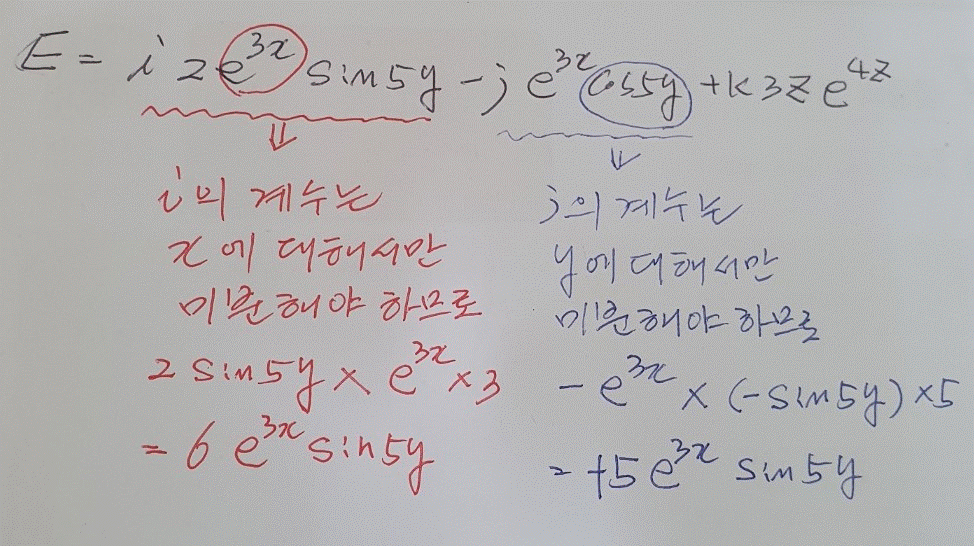 E = i 2e^{3x} sin5y - j e^{3x} cos5y + k 3z e^{4z}
⇓
i의 계수는
x에 대해서만
미분해야 하므로
2 sin5y × e^{3x} × 3
= 6 e^{3x} sin5y
⇓
j의 계수는
y에 대해서만
미분해야하므로
- e^{3x} × (-sin5y) × 5
= +5 e^{3x} sin5y